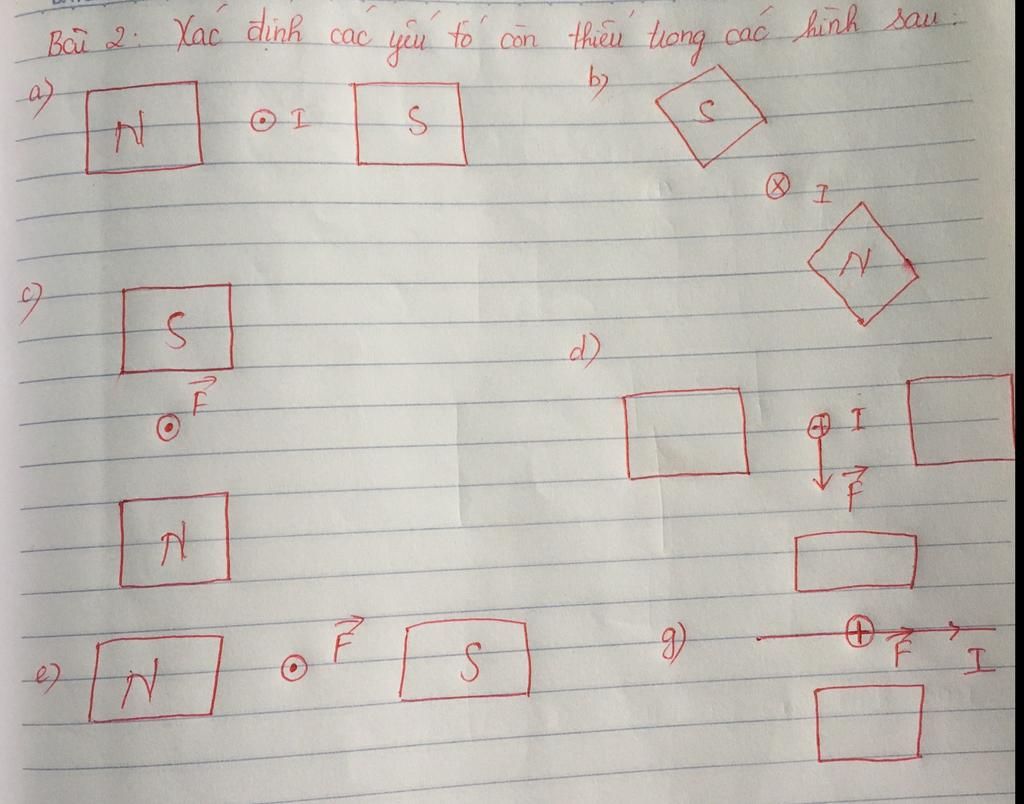 Bài 2: Xác định các yếu tố còn thiếu trong các hình sau:
a) N ⊙ I S
b) S
⊗ I
N
c) S
F
⊙
N
d)
⊕ I
F
e) N ⊙ F S
g) ⊕ F I